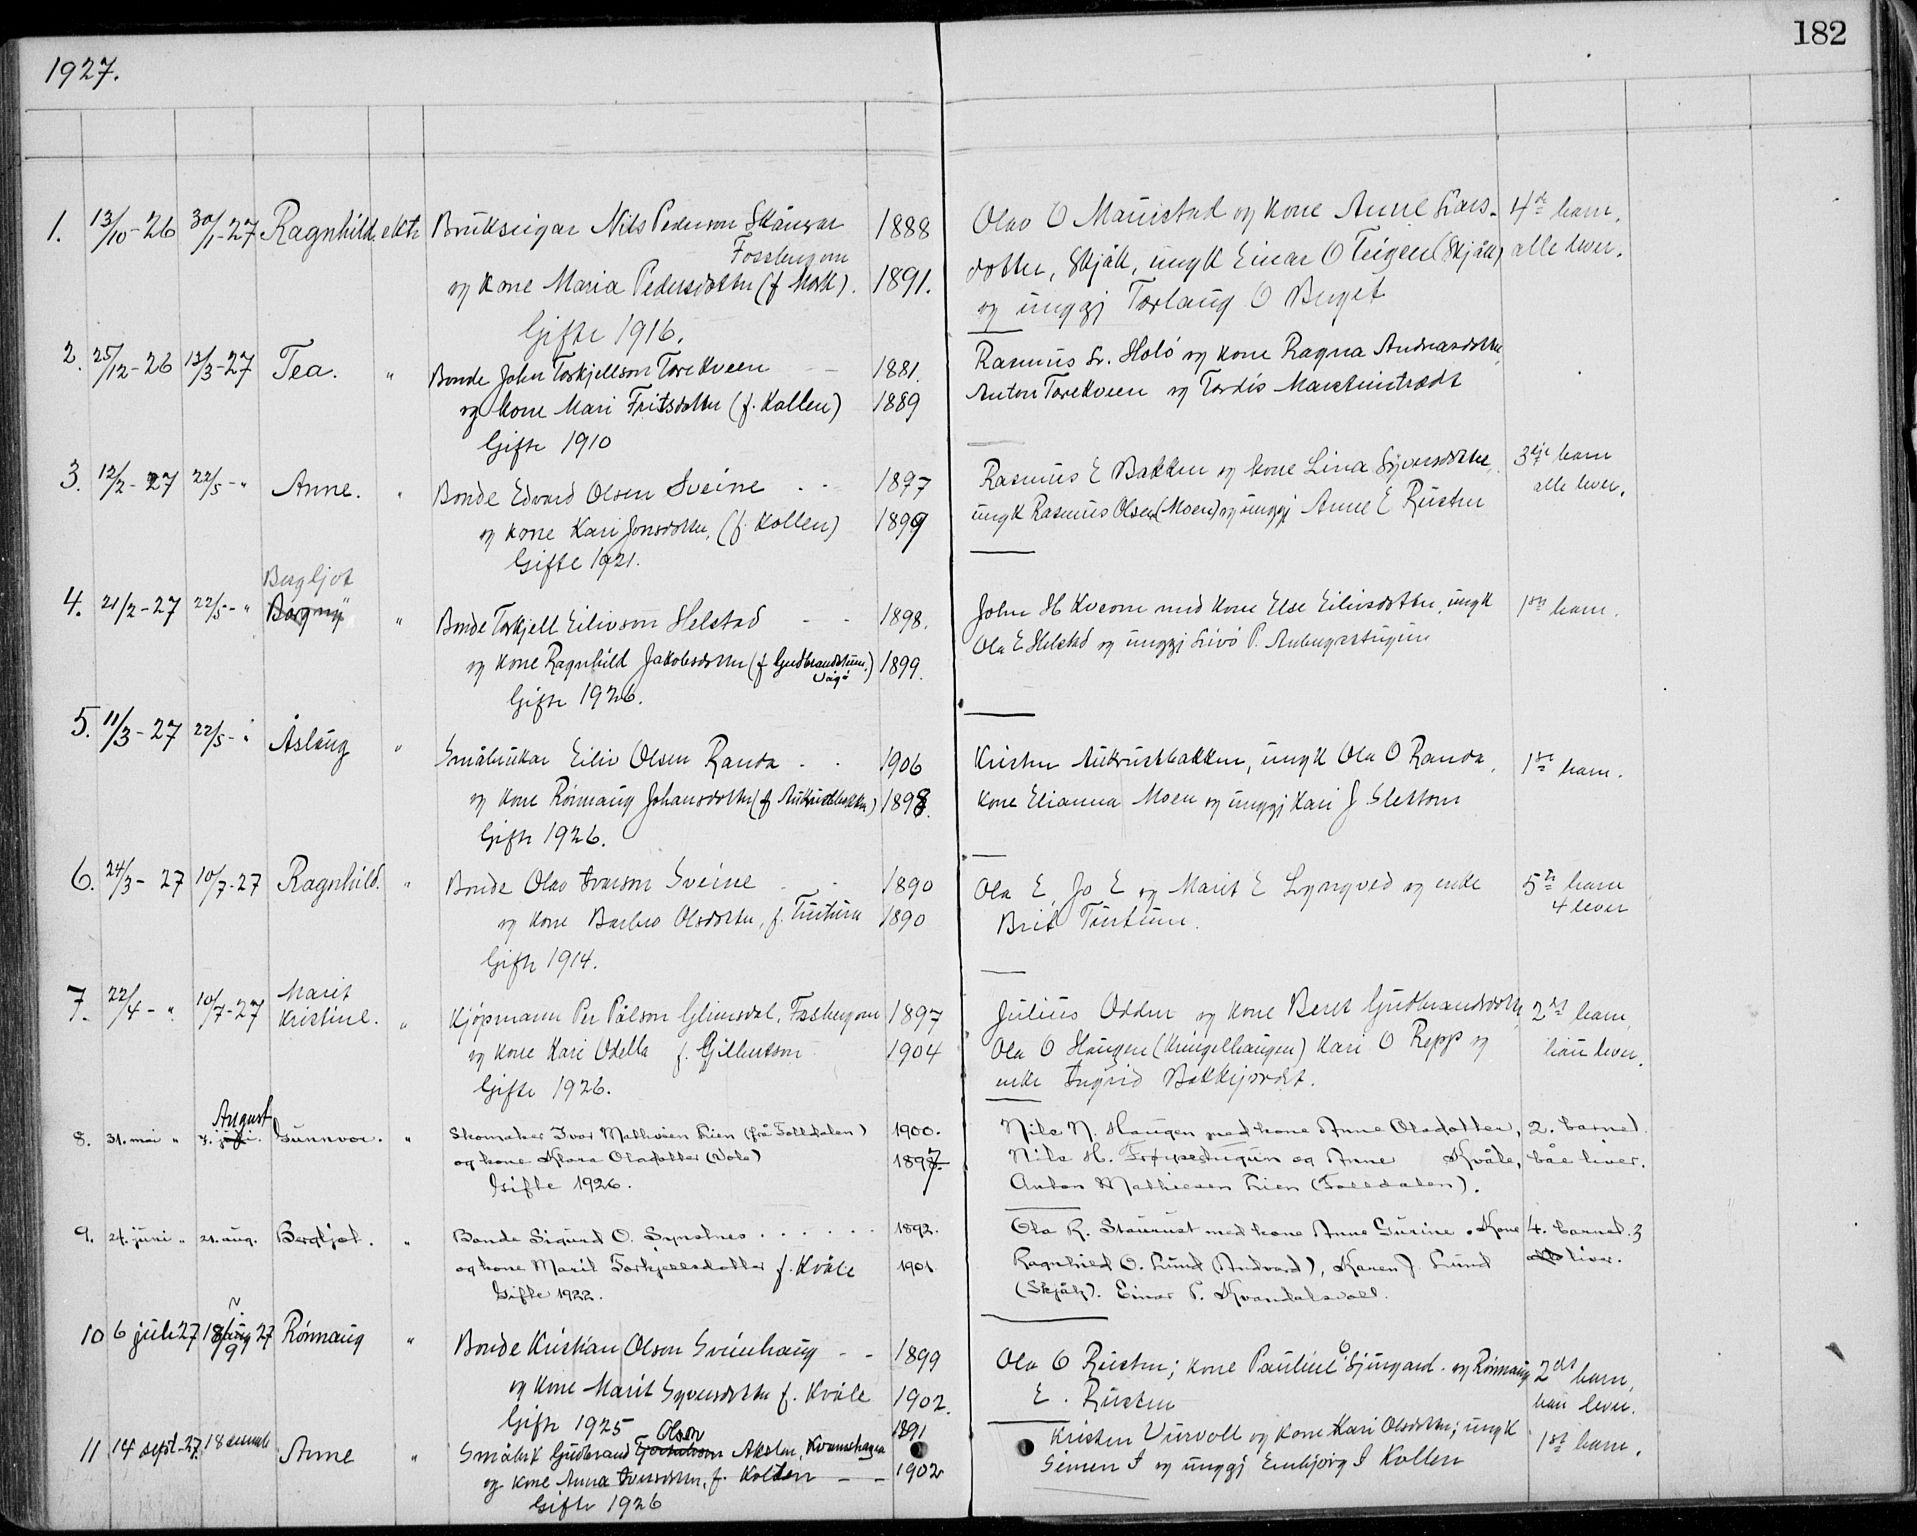 182
1927.
1. 13/10-26 30/1-27 Ragnhild. ekte Brukseigar Nils Pederson Skånsar 1888 Olav O Mauristad og kone Anne Lars- 4de barn,
Fossbergom
og kone Maria Pedersdotter (f Mork). 1891. dotter, Skjåk, ungk Einar O Teigen (Skjåk) alle lever.
og unggj Torlaug O Berget
Gifte 1916.
2. 25/12-26 13/3-27 Tea. " Bonde John Torkjellson Torekveen 1881. Rasmus Sr. Holö og kone Ragna Andreasdotter,
og kone Mari Fritsdotter (f. Kollen) 1889 Anton Torekveen og Tordis Marstinstrædt
Gifte 1910
3. 12/2-27 22/5-" Anne. " Bonde Edvard Olsen Sveine 1897 Rasmus E Bakken og kone Lina Syversdotter, 3dje barn
og kone Kari Jonsdotter, (f. Kollen) 1899 ungk Rasmus Olsen (Moen) og unggj Anne E Rusten alle lever.
Gifte 1921.
Bergljot
4. 21/2-27 22/5-" Borgny " Bonde Torkjell Eilivson Helstad 1898. John H Kveom med kone Else Eilivsdotter, ungk 1ste barn.
og kone Ragnhild Jakobsdotter (f Gudbrandstuen.) 1899. Ola E Helstad og unggj Livö P.
Vågå
Gifte 1926.
5. 11/3-27 22/5-" Åslaug " Småbrukar Eiliv Olsen Randa 1906 Kristen Aukrustbakken, ungk Ola O Randa, 1ste barn.
og kone Rönnaug Johansdotter (f Aukrustbakken) 1898. kone Elianna Moen og unggj Kari J Slettom
Gifte 1926.
6. 24/3-27 10/7-27 Ragnhild. " Bonde Olav Ivarson Sveine 1890 Ola E, Jo E og Marit E Lyngved og enke 5te barn
og kone Barbro Olsdotter, f. Turtum 1890 Brit Turtum. 4 lever
Gifte 1914.
7. 22/4-" 10/7-27 Marit
Kristine. " Kjöpmann Per Pålson Glimsdal, Fossbergom 1897 Julius Odden og kone Beret Gudbrandsdotter, 2det barn,
og kone Kari Odella f. Gilbertson 1904 Ola O Haugen (Kringelhaugen) Kari O Repp og bån lever.
Gifte 1926. enke Ingrid Bakkjordet.
August
8. 31. mai " 7. juli. Gunnvor. " Skomaker Ivar Mathisen Lien (frå Folldalen) 1900. Nils N. Haugen med kone Anne Olsdotter, 2. barnet.
og kone Klara Olsdotter (Vole) 1897. Nils H. Frøysestugun og Anne Kvåle, båe liver.
Gifte 1926. Anton Mathiesen Lien (Folldalen).
9. 24. juni " 21. aug. Bergljot. " Bonde Sigurd O. Synstnes 1892. Ola R. Staurust med kone Anne Gurine, Kone 4. barnet. 3
og kone Marit Torkjellsdotter f. Kvåle 1901 Ragnhild O. Lund (Andvord), Karen J. Lund alle liver.
Gifte 1922. (Skjåk). Einar P. Kvandalsvoll.
10 6 juli 27 18/9 27 Rönnaug " Bonde Kristian Olson Sveinhaug 1899 Ola O Rusten; kone Pauline O Sjurgard. og Rönnaug 2det barn,
og kone Marit Syversdotter f. Kvåle 1902. E. Rusten bån lever.
Gifte 1925
Olson 1891
11 14 sept-27. 18 Anne " Småbrk Gudbrand Akslen, Kvamshagen Kristen Vurvoll og kone Kari Olsdotter; ungk 1ste barn.
og kone Anna Iversdotter, f. Kollen 1902 Simen I og unggj Embjørg I Kollen
Gifte 1926